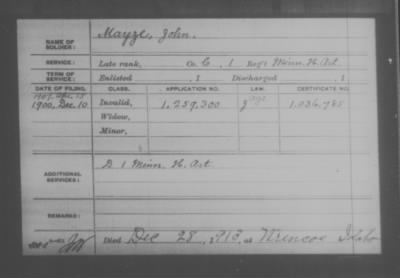 NAME OF SOLDIER: Mayze, John.
SERVICE: Late rank, Co. C, 1 Reg't Minn. H. Art.
TERM OF SERVICE: Enlisted , 1 Discharged , 1
DATE OF FILING. CLASS. APPLICATION NO. LAW. CERTIFICATE NO.
1900, Dec. 10 Invalid, 1.259.300 1.036.785
Widow,
Minor,
ADDITIONAL SERVICES: D 1 Minn. H. Art.
REMARKS:
Died Dec 28, 1913, at Idaho